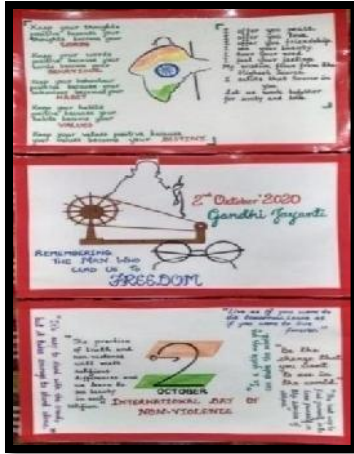 Keep your thoughts
positive because your
thoughts become your
WORDS
Keep your words
positive because your
words become your
BEHAVIOUR
Keep your behaviour
positive because your
behaviour becomes your
HABIT
Keep your habits
positive because your
habits become your
VALUES
Keep your values positive because
your values become your DESTINY.
I offer you peace
I offer you love
I offer you friendship
I see your beauty
I hear your need
I feel your feelings
My wisdom flows from the
Highest Source
I salute that Source in
you
Let us work together
for unity and love
2nd October' 2020
Gandhi Jayanti
REMEMBERING
THE MAN WHO
LEAD US TO
FREEDOM
"Live as if you were to
die tomorrow. Learn as
if you were to live
forever."
"The practice
of truth and
non violence
will melt
religious
differences and
we learn to
see beauty
in each
religion."
2
OCTOBER
"Be the
change that
you want
to see in
the world."
INTERNATIONAL DAY OF
NON-VIOLENCE